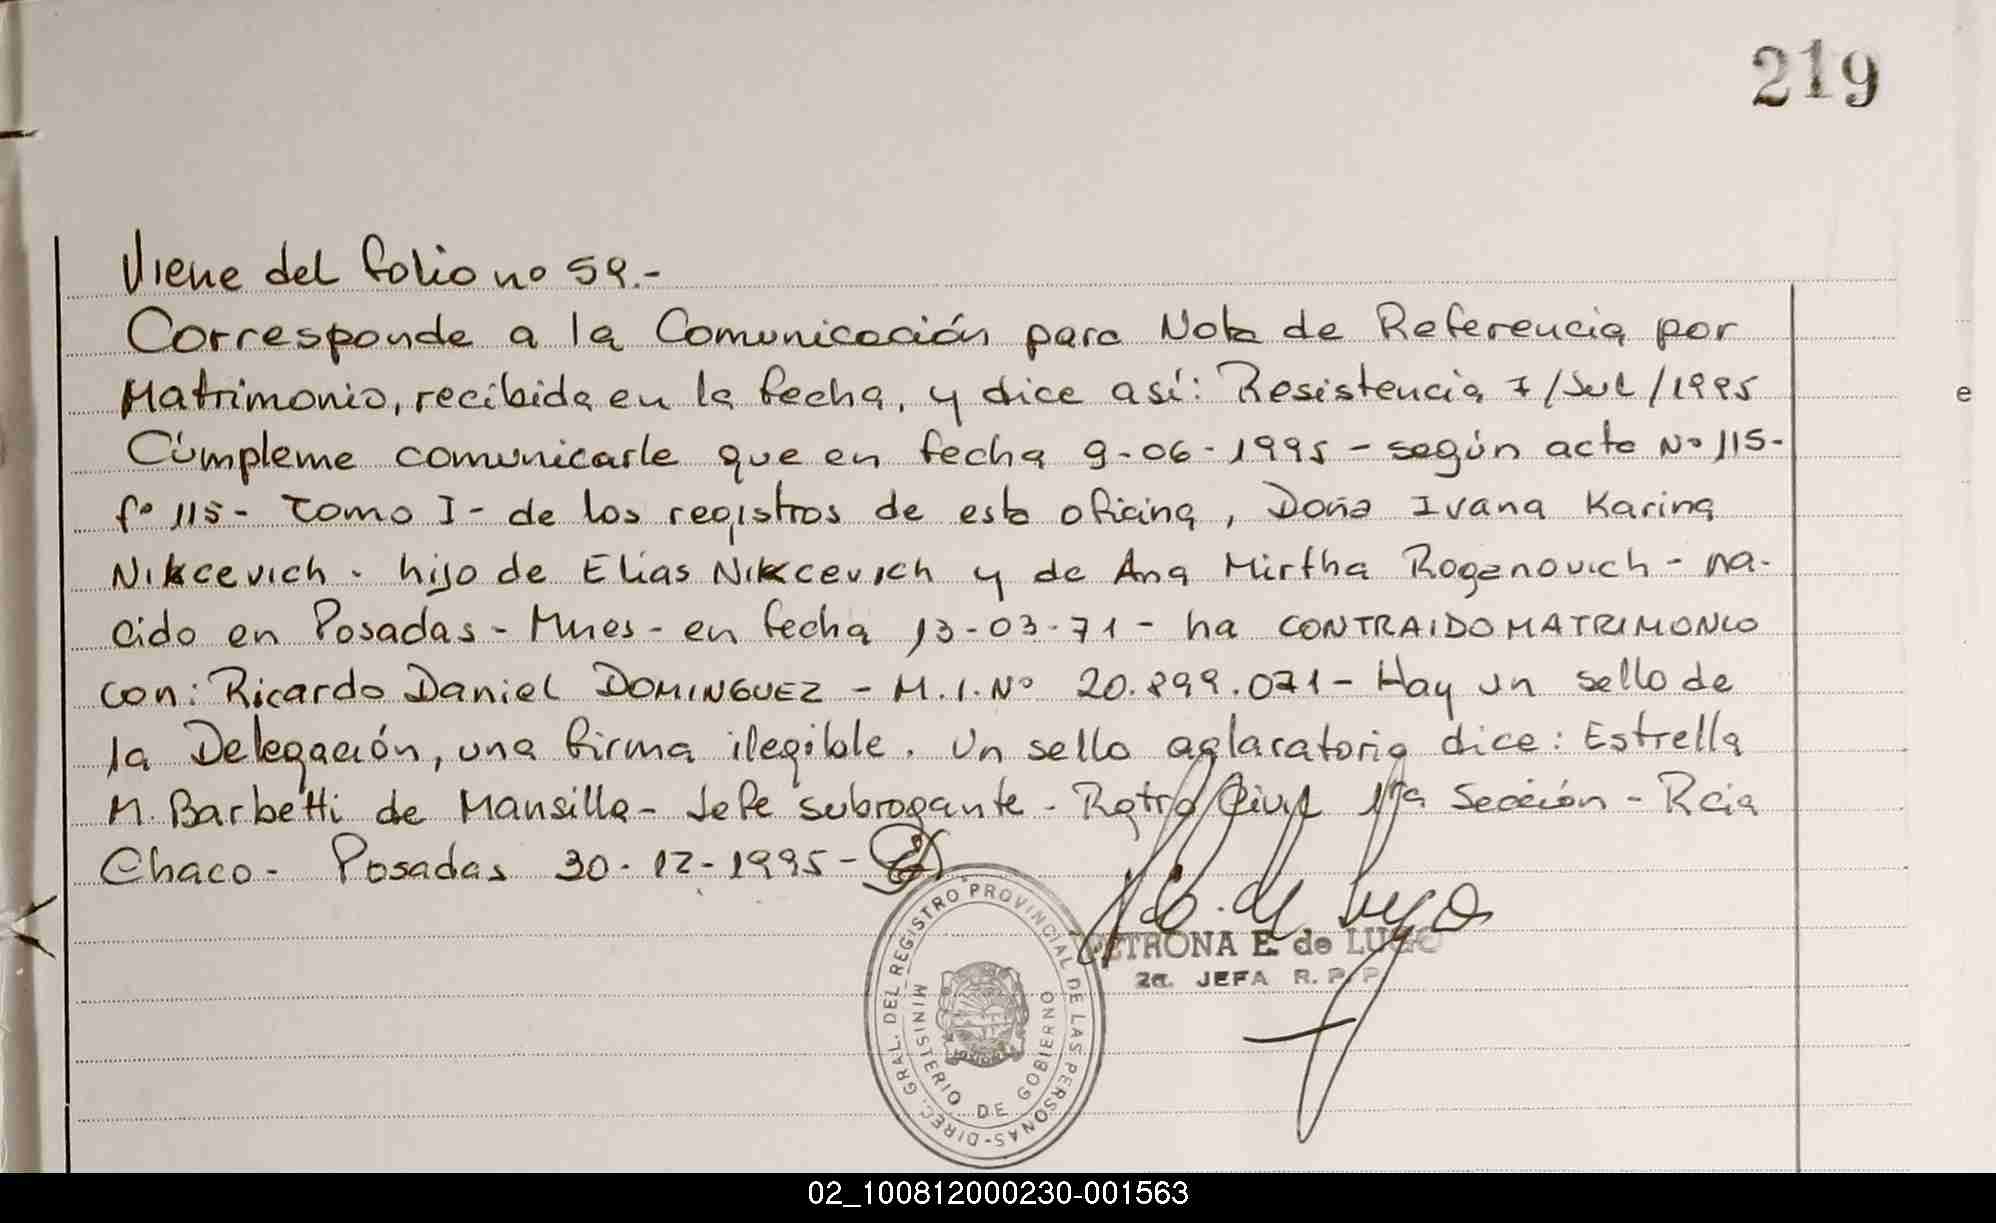 219
Viene del folio nº 59.-
Corresponde a la Comunicación para Nota de Referencia por
Matrimonio, recibida en la fecha, y dice así: Resistencia 7/Jul/1995
Cúmpleme comunicarle que en fecha 9-06-1995 - según acta Nº 115-
fº 115- Tomo I - de los registros de esta oficina, Doña Ivana Karina
Nikcevich. hijo de Elias Nikcevich y de Ana Mirtha Rogenovich - na-
cido en Posadas - Mnes - en fecha 13-03-71 - ha CONTRAIDO MATRIMONIO
con: Ricardo Daniel DOMINGUEZ - M.I.Nº 20.899.071 - Hay un sello de
la Delegación, una firma ilegible. Un sello aglaratorio dice: Estrella
M. Barbetti de Mansilla - Jefe subrogante - Rgtro Civil 1ra Sección - Rcia
Chaco - Posadas 30-12-1995 -
PETRONA E. de LUGO
2a. JEFA R. P. P.
DIREC. GRAL. DEL REGISTRO PROVINCIAL DE LAS PERSONAS-
MINISTERIO DE GOBIERNO
e
02_100812000230-001563